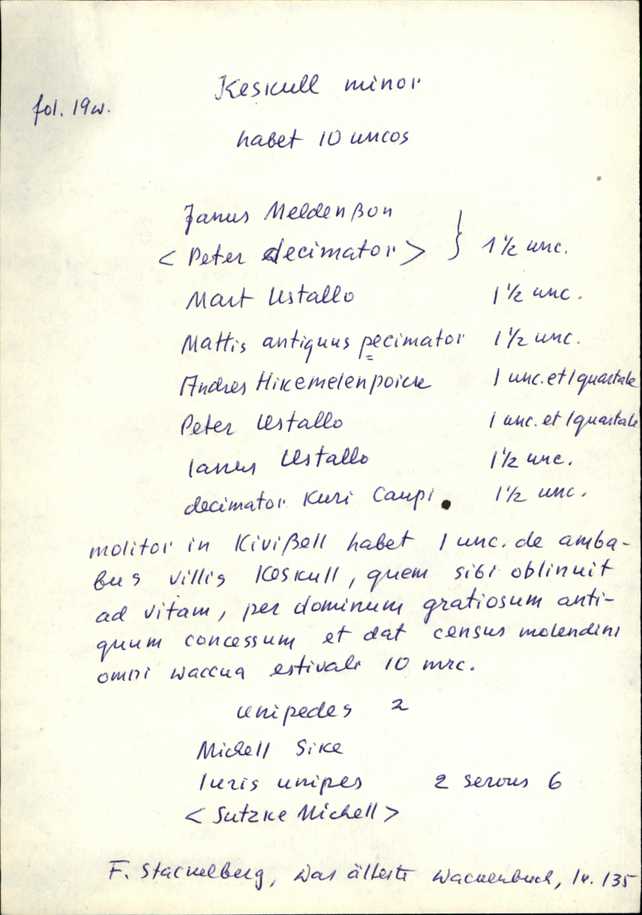 Keskull minor
fol. 19w.
habet 10 uncos
Janus Meldenßon
< Peter decimator > } 1 1/2 unc.
Mart Ustallo 1 1/2 unc.
Mattis antiquus pecimator 1 1/2 unc.
Andres Hikemelenpoicke 1 unc. et 1 quartale
Peter Ustallo 1 unc. et 1 quartale
Ianus Ustallo 1 1/2 unc.
decimator Kuri Caupi 1 1/2 unc.
molitor in Kivißell habet 1 unc. de amba-
bus villis Keskull, quem sibi oblinuit
ad vitam, per dominum gratiosum anti-
quum concessum et dat census molendini
omni waccua estivali 10 mrc.
unipedes 2
Michell Sike
Iuris unipes 2 servus 6
< Sutzke Michell >
F. Stackelberg, Das älteste Wackenbuch, lk. 135